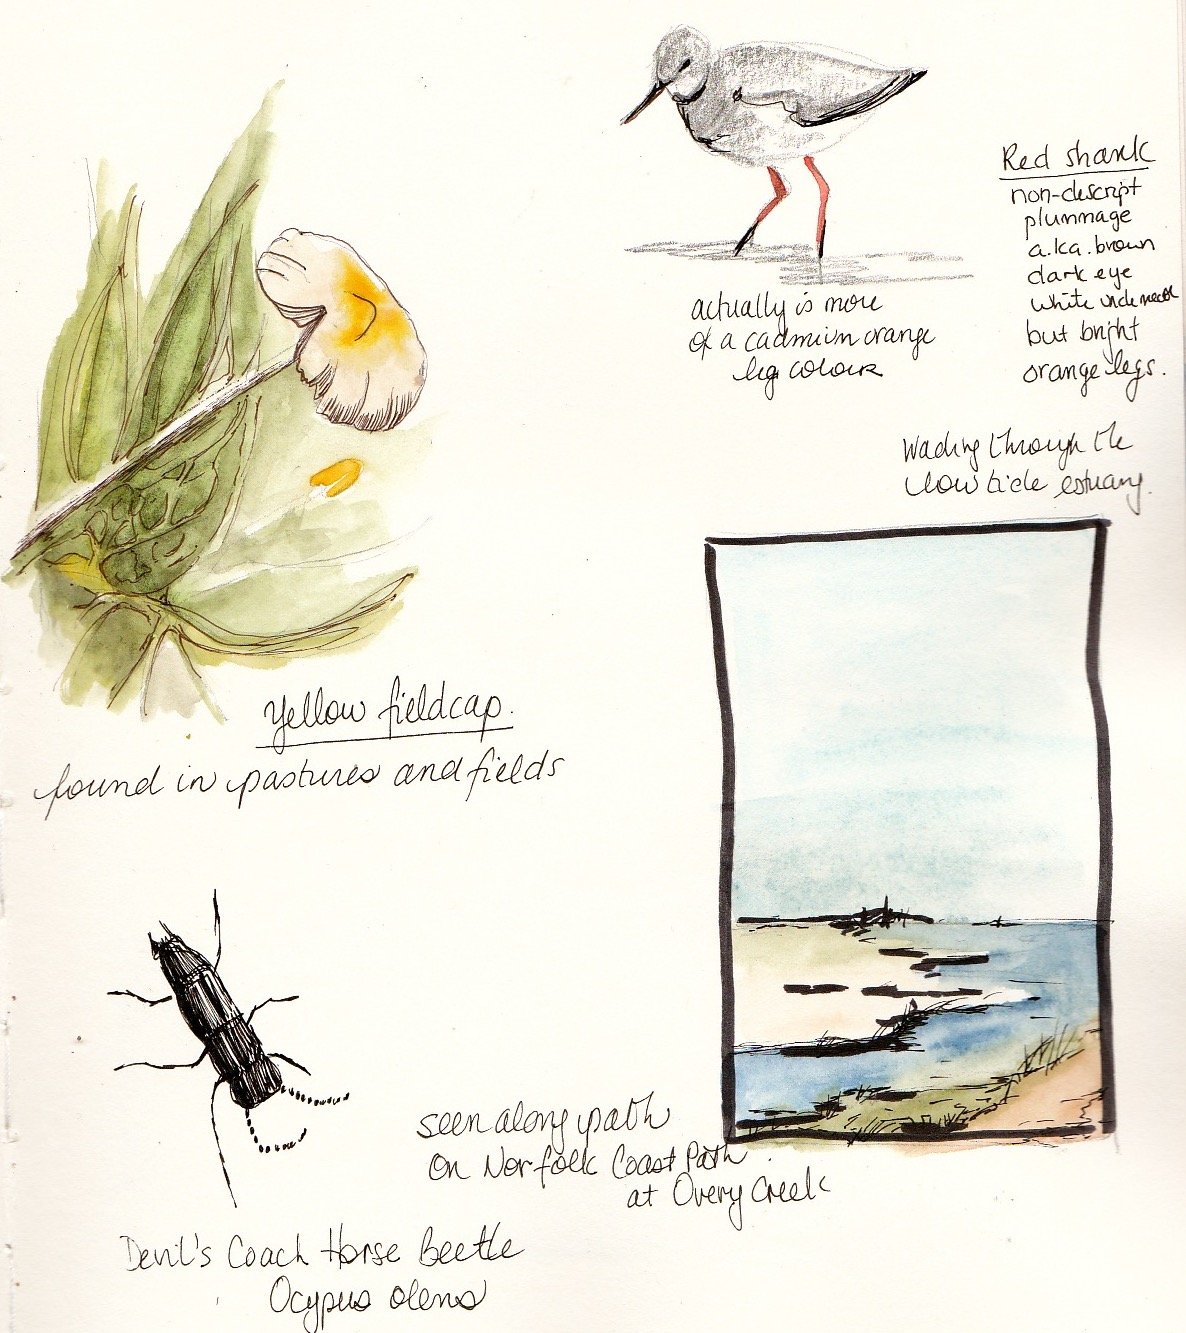 Red shank
non-descript
plummage
a.k.a. brown
dark eye
white underneath
but bright
orange legs.
actually is more
of a cadmium orange
leg colour
Wading through the
low tide estuary.
Yellow fieldcap.
found in pastures and fields
seen along path
on Norfolk Coast Path.
at Overy Creek
Devil's Coach Horse Beetle
Ocypus olens